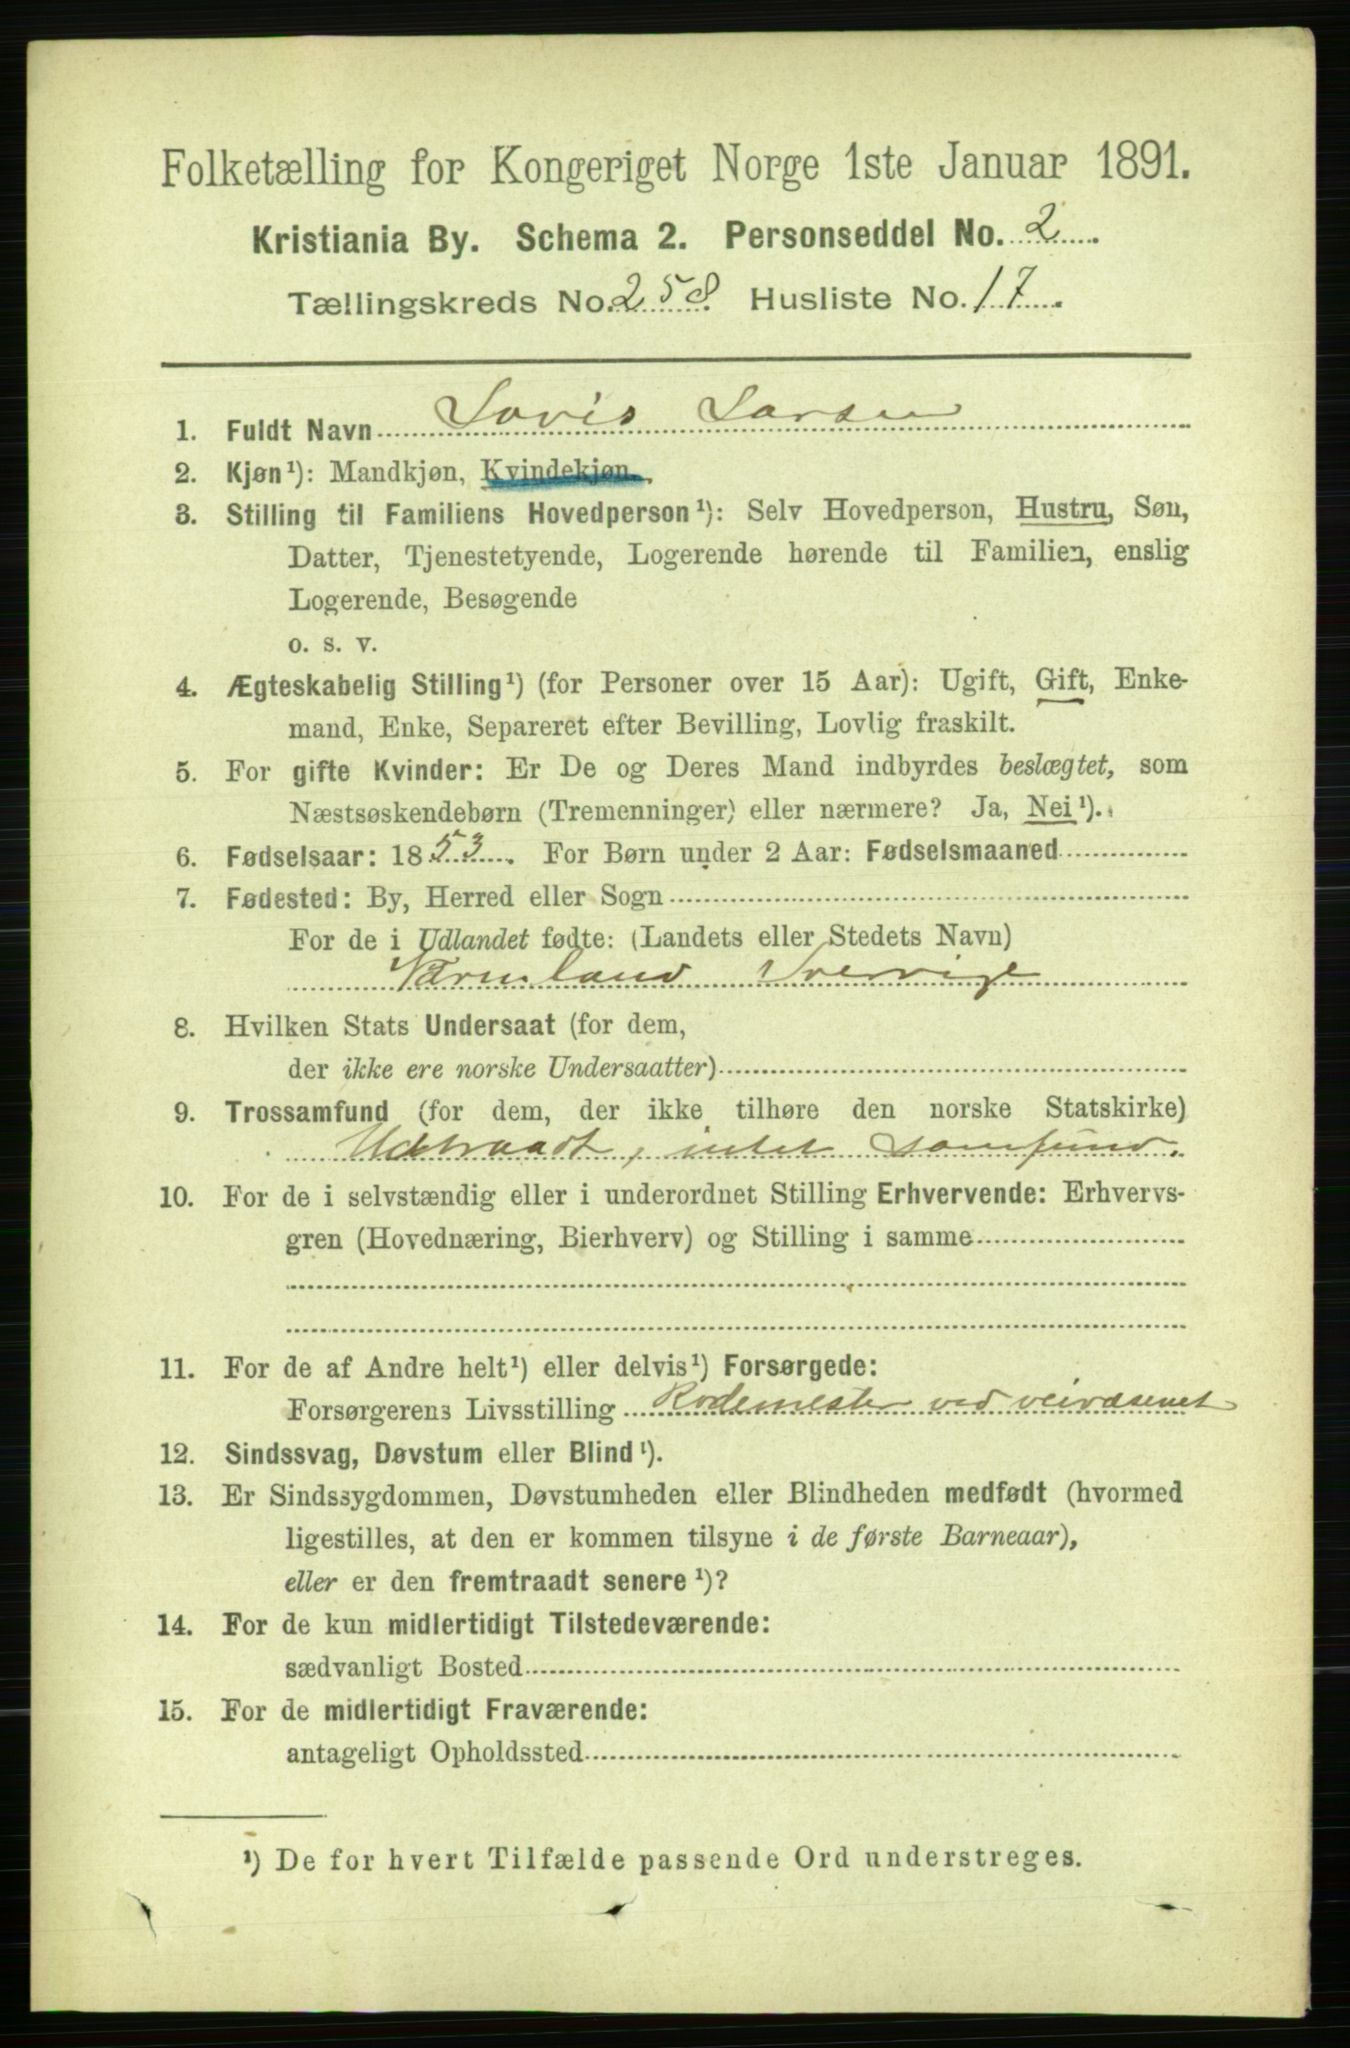 Folketælling for Kongeriget Norge 1ste Januar 1891.
Kristiania By. Schema 2. Personseddel No. 2
Tællingskreds No. 258 Husliste No. 17
1. Fuldt Navn Lovis Larsen
2. Kjøn¹): Mandkjøn, Kvindekjøn.
3. Stilling til Familiens Hovedperson¹): Selv Hovedperson, Hustru, Søn,
Datter, Tjenestetyende, Logerende hørende til Familien, enslig
Logerende, Besøgende
o. s. v.
4. Ægteskabelig Stilling¹) (for Personer over 15 Aar): Ugift, Gift, Enke-
mand, Enke, Separeret efter Bevilling, Lovlig fraskilt.
5. For gifte Kvinder: Er De og Deres Mand indbyrdes beslægtet, som
Næstsøskendebørn (Tremenninger) eller nærmere? Ja, Nei¹).
6. Fødselsaar: 1853. For Børn under 2 Aar: Fødselsmaaned
7. Fødested: By, Herred eller Sogn
For de i Udlandet fødte: (Landets eller Stedets Navn)
Värmland Sverrige
8. Hvilken Stats Undersaat (for dem,
der ikke ere norske Undersaatter)
9. Trossamfund (for dem, der ikke tilhøre den norske Statskirke)
Udtraadt, intet samfund.
10. For de i selvstændig eller i underordnet Stilling Erhvervende: Erhvervs-
gren (Hovednæring, Bierhverv) og Stilling i samme
11. For de af Andre helt¹) eller delvis¹) Forsørgede:
Forsørgerens Livsstilling Rodemester ved veivæsenet
12. Sindssvag, Døvstum eller Blind¹).
13. Er Sindssygdommen, Døvstumheden eller Blindheden medfødt (hvormed
ligestilles, at den er kommen tilsyne i de første Barneaar),
eller er den fremtraadt senere¹)?
14. For de kun midlertidigt Tilstedeværende:
sædvanligt Bosted
15. For de midlertidigt Fraværende:
antageligt Opholdssted
¹) De for hvert Tilfælde passende Ord understreges.